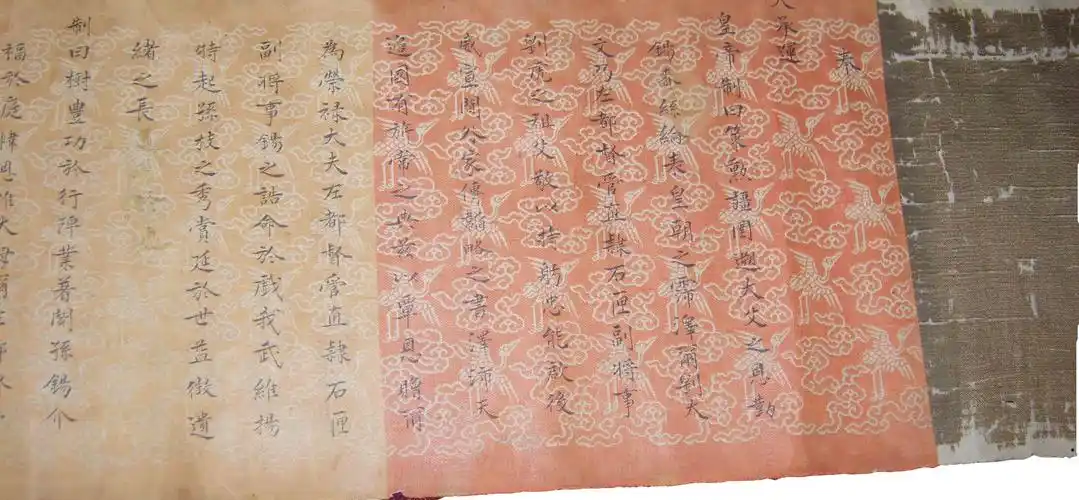 奉
天承運
皇帝制曰策勳疆圉遡大父之恩勤
錫秦絲綸表皇朝之霈澤爾劉大
文乃左都督管直隸石匣副將事
劉虎之祖父敬以持躬忠能啟後
威宣閫外家傳韜略之書澤沛天
邊國有旂常之典茲以覃恩贈爾
為榮祿大夫左都督管直隸石匣
副將事錫之誥命於戲我武維揚
特起孫枝之秀賞延於世益徵遺
緒之長
制曰樹豐功於行陣業著聞孫錫介
福於庭幃恩推大母爾